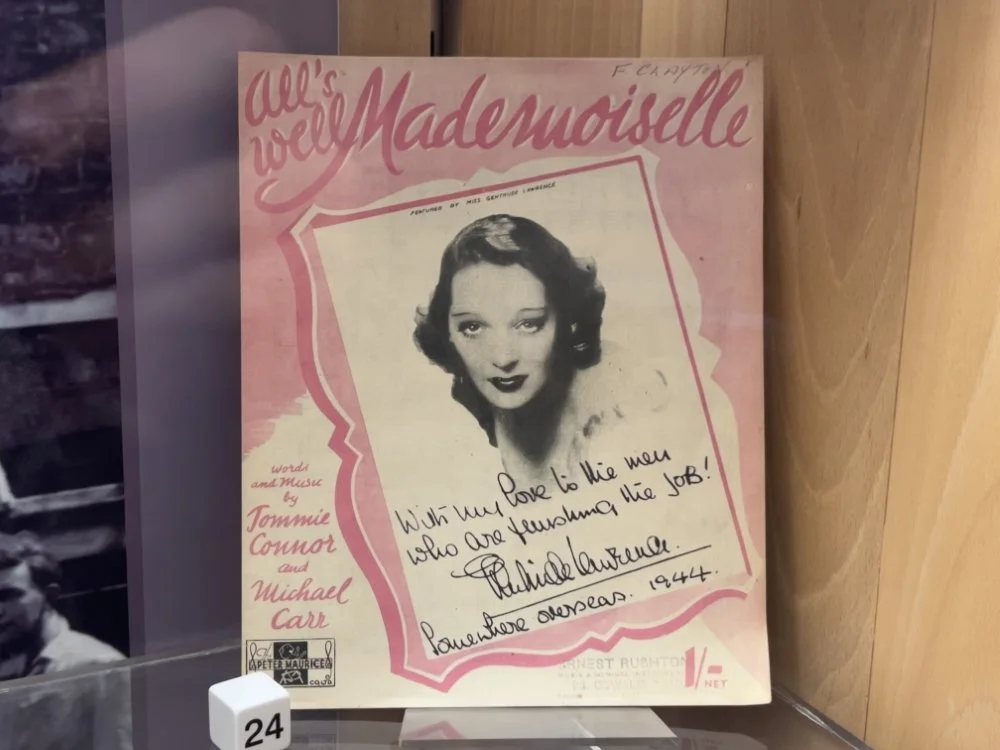 F CLAYTON
All's well Mademoiselle
FEATURED BY MISS GERTRUDE LAWRENCE
With my love to the men
who are finishing the JOB!
Gertrude Lawrence.
Somewhere overseas. 1944.
words
and Music
by
Tommie
Connor
and
Michael
Carr
THE
PETER MAURICE
CO LTD
ERNEST RUSHTON
1/-
NET
24